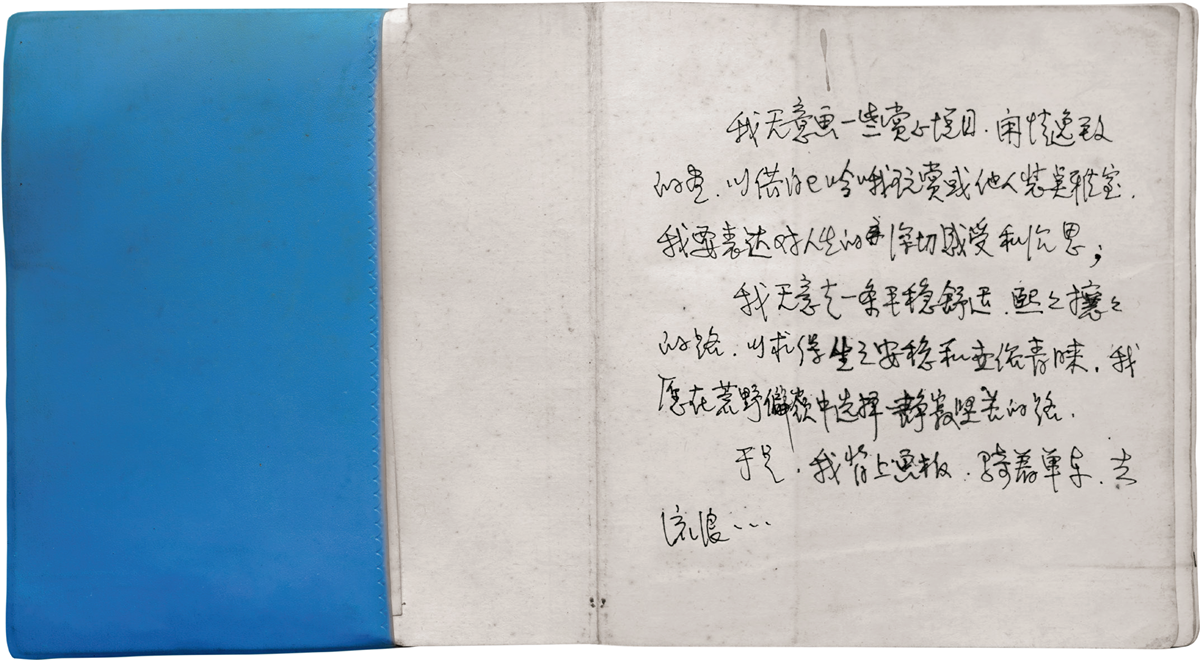 我无意画一些赏心悦目、闲情逸致
的画,以供自己吟哦玩赏或他人装点雅室,
我要表达对人生的深切感受和沉思;
我无意走一条平稳舒适、熙々攘々
的路,以求得生之安稳和世俗青睐,我
愿在荒野偏颓中选择静寂坚苦的路。
于是,我背上画板,骑着单车,去
流浪…